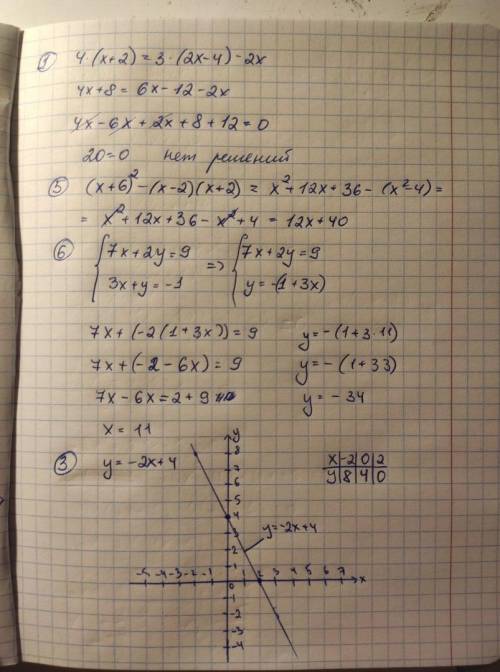 1 4·(x+2)=3·(2x-4)-2x
4x+8=6x-12-2x
4x-6x+2x+8+12=0
20=0 нет решений
5 (x+6)²-(x-2)(x+2)=x²+12x+36-(x²-4)=
=x²+12x+36-x²+4=12x+40
6 {7x+2y=9 => {7x+2y=9
3x+y=-1 y=-(1+3x)
7x+(-2(1+3x))=9 y=-(1+3·11)
7x+(-2-6x)=9 y=-(1+33)
7x-6x=2+9 y=-34
x=11
3 y=-2x+4
x|-2|0|2
y|8|4|0
y
8
7
6
5
4
3
2
1
y=-2x+4
-5 -4 -3 -2 -1 0 1 2 3 4 5 6 7 x
-1
-2
-3
-4